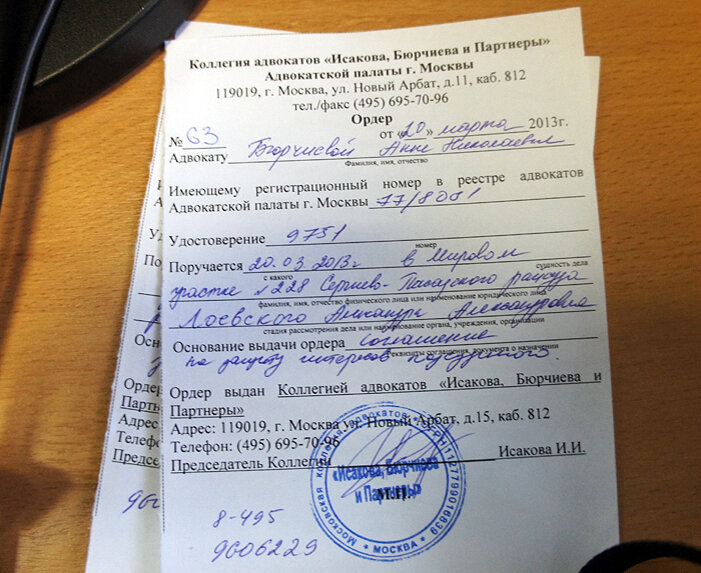 Коллегия адвокатов «Исакова, Бюрчиева и Партнеры»
Адвокатской палаты г. Москвы
119019, г. Москва, ул. Новый Арбат, д.11, каб. 812
тел./факс (495) 695-70-96
Ордер
№ 63 от «20» марта 2013г.
Адвокату Бюрчиевой Анне Николаевне
Фамилия, имя, отчество
Имеющему регистрационный номер в реестре адвокатов
Адвокатской палаты г. Москвы 77/8001
Удостоверение 9751
номер
Поручается 20.03.2013г. в Мировом
с какого сущность дела
участке №228 Сергиево-Посадского
фамилия, имя, отчество физического лица или наименование юридического лица
Лоевского Александра Александровича
стадия рассмотрения дела или наименование органа, учреждения, организации
Основание выдачи ордера соглашение
реквизиты соглашения, документа о назначении
на защиту интересов подсудимого.
Ордер выдан Коллегией адвокатов «Исакова, Бюрчиева и
Партнеры»
Адрес: 119019, г. Москва ул. Новый Арбат, д.15, каб. 812
Телефон: (495) 695-70-96
Председатель Коллегии Исакова И.И.
«Исакова, Бюрчиева
и Партнеры»
М.П.
Московская коллегия адвокатов * ОГРН 1127799016839 * МОСКВА *
8-495
9606229
Ордер
Партн
Адрес:
Телефо
Предсе